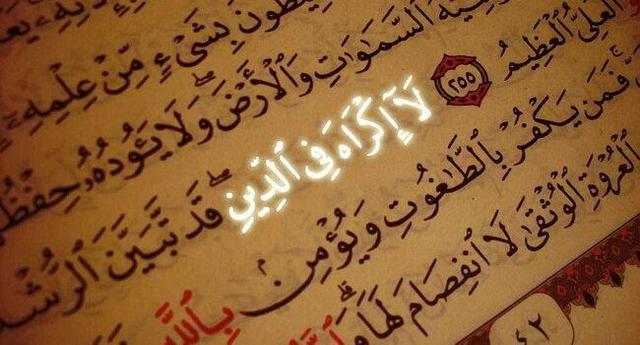 بِشَىْءٍ مِّنْ عِلْمِهِۦٓ
ٱلسَّمَٰوَٰتِ وَٱلْأَرْضَ ۖ وَلَا يَـُٔودُهُۥ
ٱلْعَلِىُّ ٱلْعَظِيمُ ٢٥٥ لَآ إِكْرَاهَ فِى ٱلدِّينِ ۖ قَد تَّبَيَّنَ
فَمَن يَكْفُرْ بِٱلطَّٰغُوتِ وَيُؤْمِنۢ بِٱللَّهِ
ٱلْعُرْوَةِ ٱلْوُثْقَىٰ لَا ٱنفِصَامَ لَهَا ۗ
٤٢